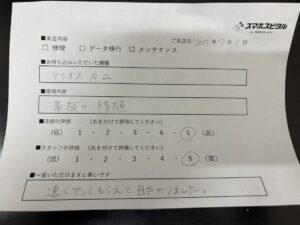 スマホスピタル
■来店内容
ご来店日:2025年7月1日
□ 修理 □ データ移行 ☑ メンテナンス
■お持ち込みいただいた機種
アクオス R2
■修理内容
基板の修理
■店舗の評価 (丸を付けて評価してください)
(低) 1 ・ 2 ・ 3 ・ 4 ・ 5 (高)
■スタッフの評価 (丸を付けて評価してください)
(低) 1 ・ 2 ・ 3 ・ 4 ・ 5 (高)
■一言いただけますと幸いです
速くやってもらえて助かりました。